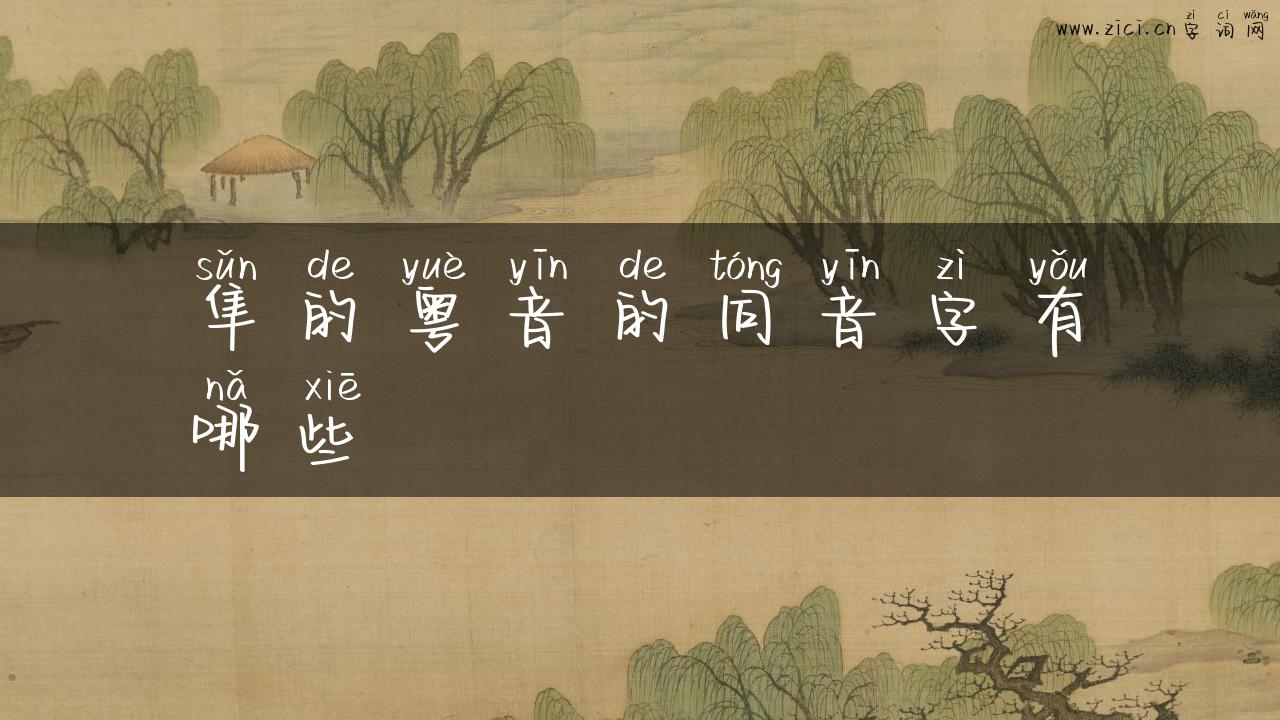 zì cí wǎng
www.zici.cn 字 词 网
sǔn de yuè yīn de tóng yīn zì yǒu
隼 的 粤 音 的 同 音 字 有
nǎ xiē
哪 些